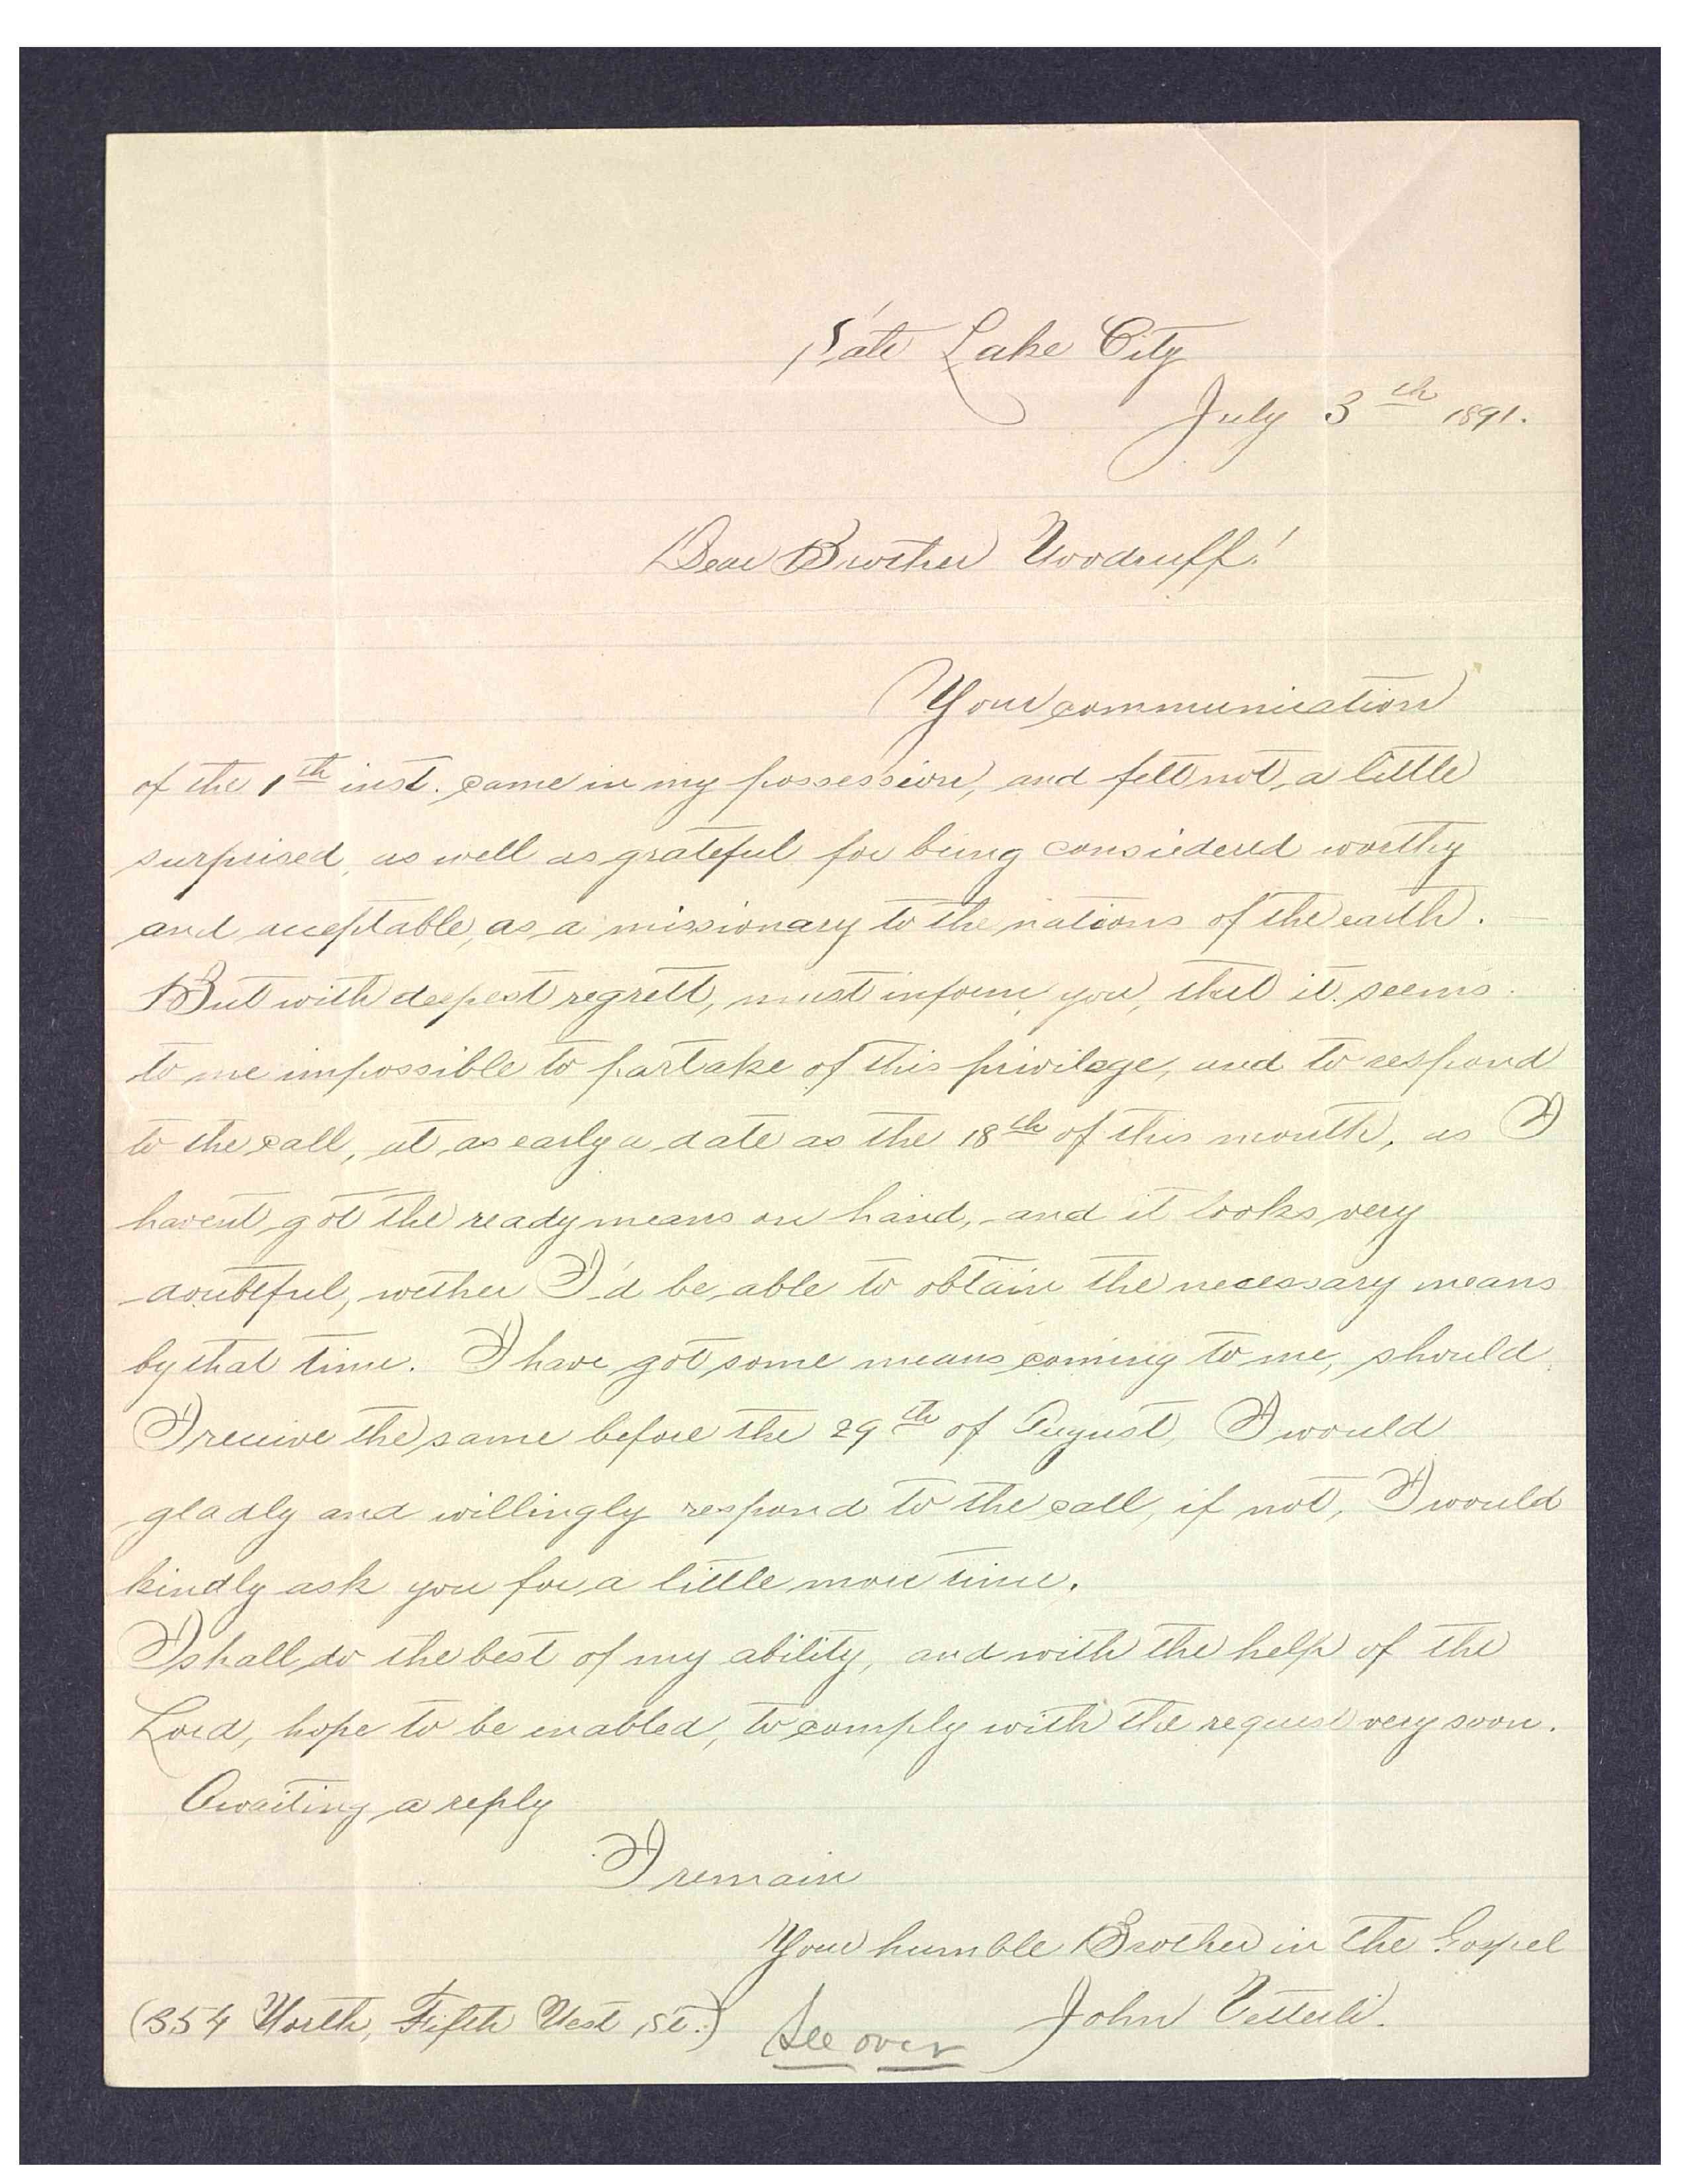 Salt Lake City
July 3th 1891.
Dear Brother Woodruff!
Your communication
of the 1th inst. came in my possession, and felt not a little
surprised, as well as grateful for being consiedered worthy
and acceptable, as a missionary to the nations of the earth.
But with deepest regrett, must inform you, that it seems
to me impossible to partake of this privilege, and to respond
to the call, at as early a date as the 18th of this month, as I
havent got the ready means on hand, and it looks very
doubtful, wether I'd be able to obtain the necessary means
by that time. I have got some means coming to me, should
I receive the same before the 29th of August, I would
gladly and willingly respond to the call, if not, I would
kindly ask you for a little more time.
I shall do the best of my ability, and with the help of the
Lord, hope to be enabled, to comply with the request very soon.
Awaiting a reply
I remain
Your humble Brother in the Gospel
John Vetterli.
(354 North, Fifth West, St.)
See over